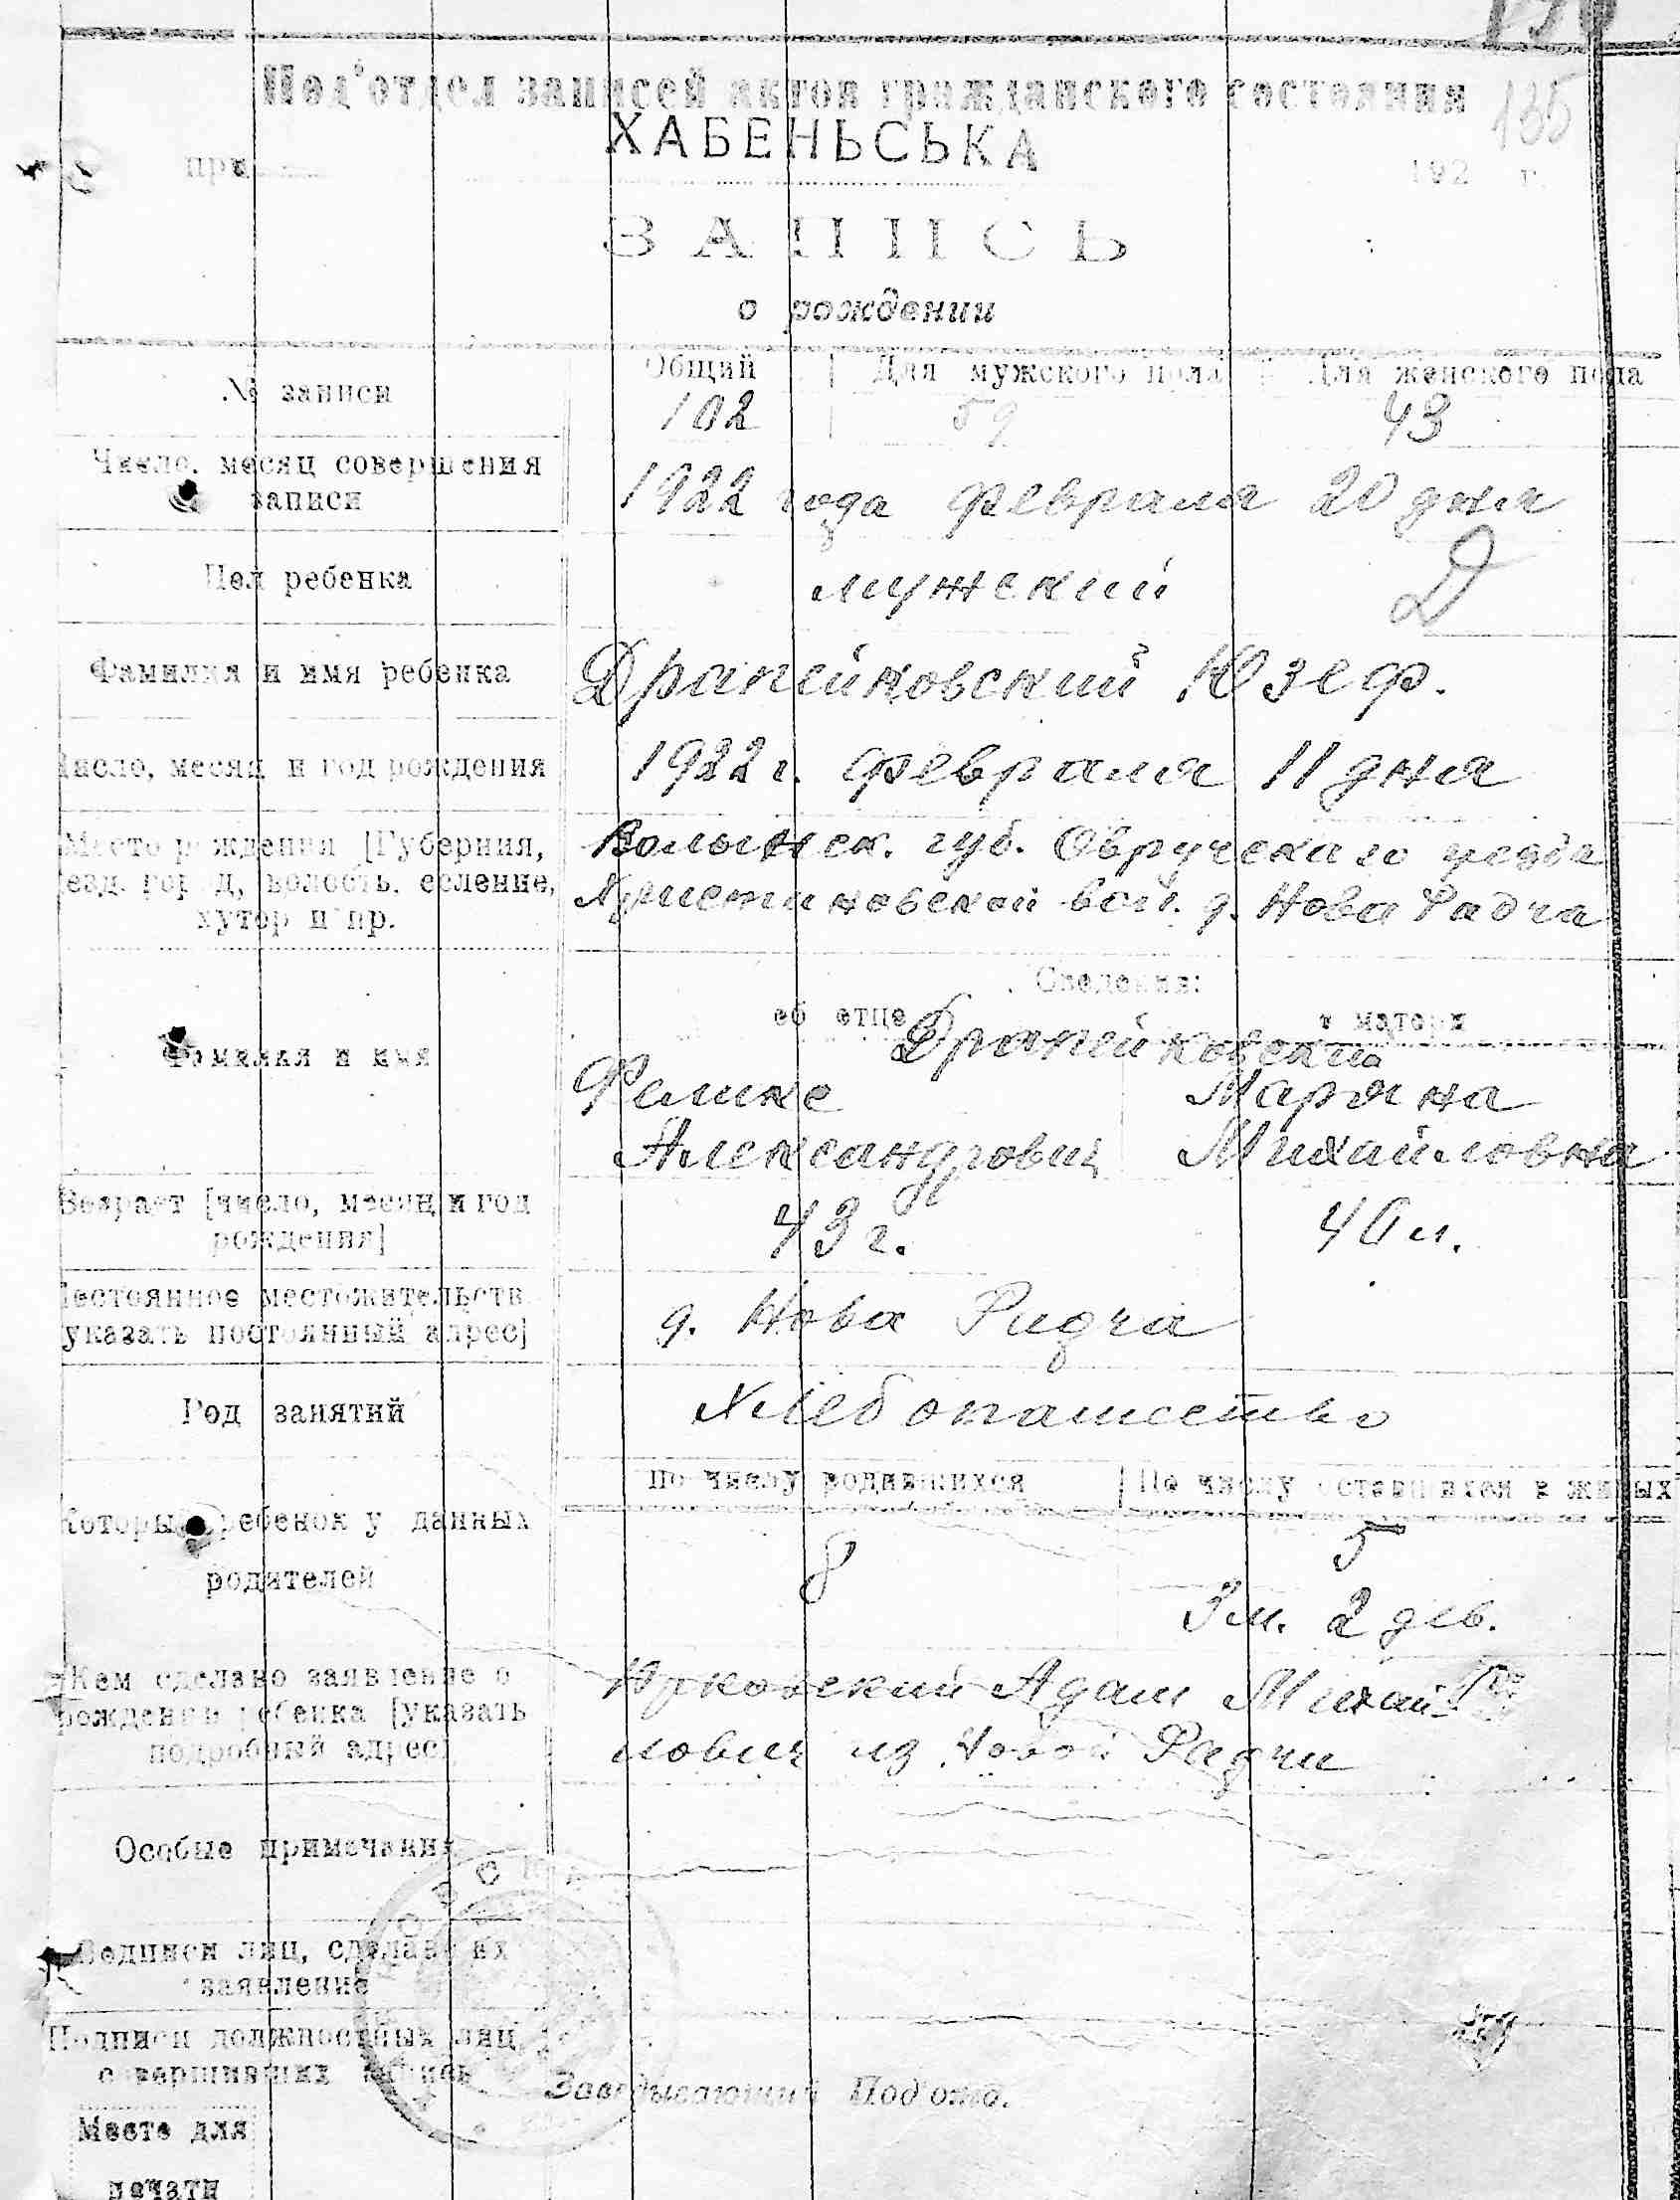 135
Под'отдел записей актов гражданского состояния
ХАБЕНЬСЬКА
при 192 г.
ЗАПИСЬ
о рождении
№ записи Общий Для мужского пола Для женского пола
102 59 43
Число, месяц совершения
записи
1922 года февраля 20 дня
Пол ребенка мужский Д
Фамилия и имя ребенка Драпейковский Юзеф.
Число, месяц и год рождения 1922 г. февраля 11 дня
Место рождения [Губерния,
уезд, город, волость, селение,
хутор и пр.
Волынск. губ. Овручскаго уезда
Христиновской вол. д. Нова Радча
Сведения:
об отце о матери
Фамилия и имя
Драпейковские
Феликс Марьяна
Александрович Михайловна
Возраст [число, месяц и год
рождения]
43 г. 40 л.
Постоянное местожительств.
указать постоянный адрес]
д. Нова Радча
Род занятий Хлебопашество
по числу родившихся По числу оставшихся в живых
Который ребенок у данных
родителей
8 5
3 м. 2 дев.
Кем сделано заявление о
рождении ребенка [указать
подробный адрес]
Адам Михай
лович из Новой Радчи
Особые примечания
Подписи лиц, сделавших
заявление
Подписи должностных лиц,
совершивших запись
Заведывающий Подотд.
Место для
печати